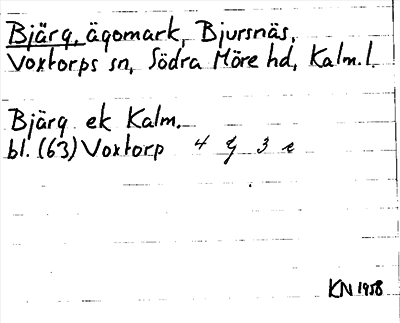 Bjärg, ägomark, Bjursnäs,
Voxtorps sn, Södra Möre hd, Kalm. l.
Bjärg ek Kalm.
bl. (63) Voxtorp 4 g 3 e
KN 1958